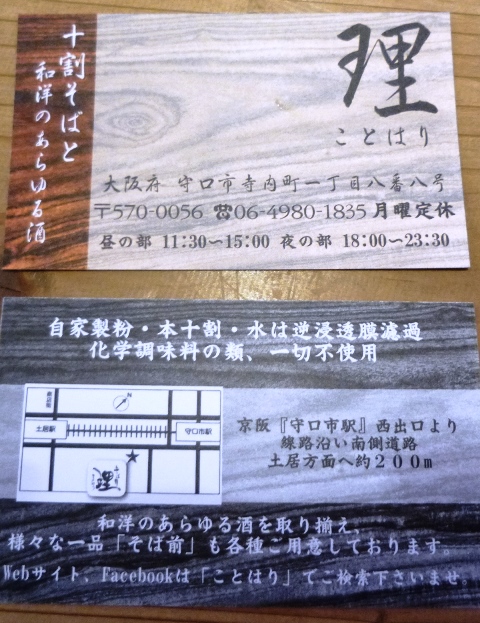 十割そばと
和洋のあらゆる酒
理
ことはり
大阪府 守口市寺内町一丁目八番八号
〒570-0056 ☎06-4980-1835 月曜定休
昼の部 11:30〜15:00 夜の部 18:00〜23:30
自家製粉・本十割・水は逆浸透膜濾過
化学調味料の類、一切不使用
商店街
N
土居駅
守口市駅
★
理
ことはり
京阪『守口市駅』西出口より
線路沿い南側道路
土居方面へ約200m
和洋のあらゆる酒を取り揃え、
様々な一品「そば前」も各種ご用意しております。
Webサイト、Facebookは「ことはり」でご検索下さいませ。